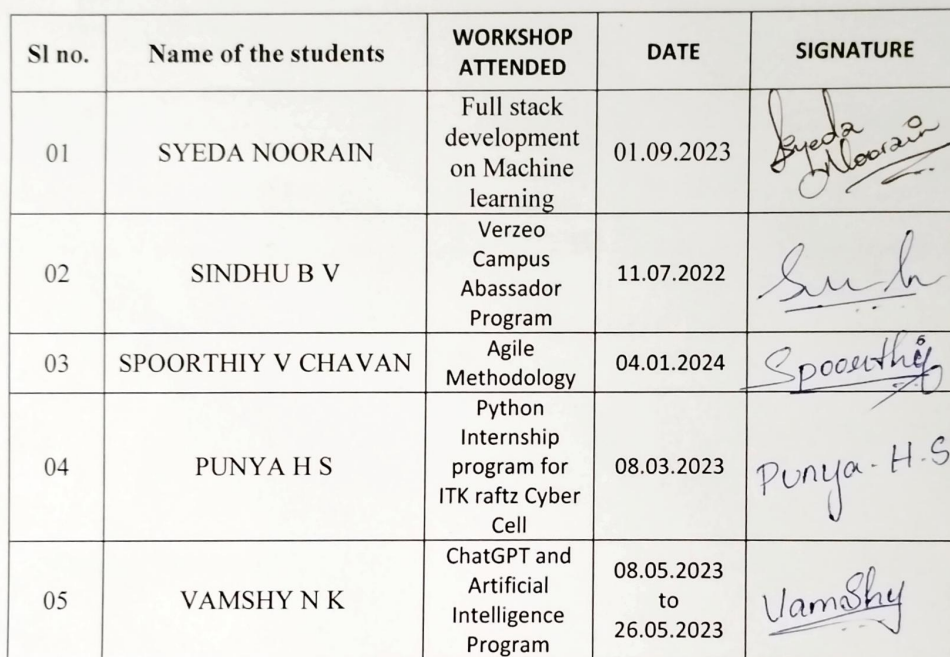 Sl no. Name of the students WORKSHOP ATTENDED DATE SIGNATURE
01 SYEDA NOORAIN Full stack development on Machine learning 01.09.2023 Syeda Noorain
02 SINDHU B V Verzeo Campus Abassador Program 11.07.2022
03 SPOORTHIY V CHAVAN Agile Methodology 04.01.2024 Spoorthiy
04 PUNYA H S Python Internship program for ITK raftz Cyber Cell 08.03.2023 Punya - H.S
05 VAMSHY N K ChatGPT and Artificial Intelligence Program 08.05.2023 to 26.05.2023 VamShy